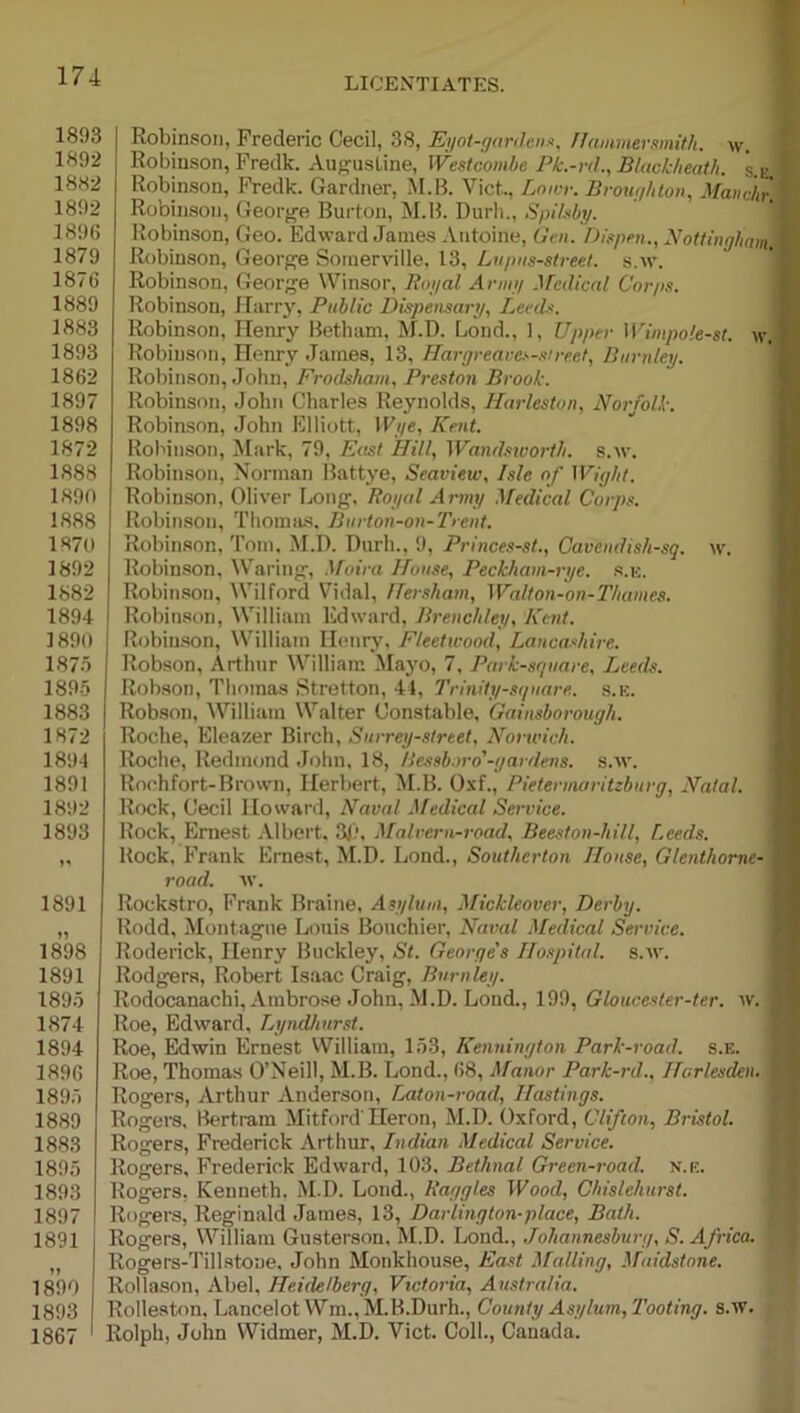 174
LICENTIATES.
1893 Robinson, Frederic Cecil, 38, Eyot-gardens, Hammersmith. w.
1892 Robinson, Fredk. Augustine, Westcombe Pk.-rd., Blackheath. s.e.
1882 Robinson, Fredk. Gardner, M.B. Vict., Lowr. Broughton, Manchr.
1892 Robinson, George Burton, M.B. Durh., Spilsby.
1896 Robinson, Geo. Edward James Antoine, Gen. Dispen., Nottingham.
1879 Robinson, George Somerville, 13, Lupus-street. s.w.
1876 Robinson, George Winsor, Royal Army Medical Corps.
1889 Robinson, Harry, Public Dispensary, Leeds.
1883 Robinson, Henry Betham, M.D. Lond., 1, Upper Wimpole-st. w.
1893 Robinson, Henry James, 13, Hargreaves-street, Burnley.
1862 Robinson, John, Frodsham, Preston Brook.
1897 Robinson, John Charles Reynolds, Harleston, Norfolk.
1898 Robinson, John Elliott, Wye, Kent.
1872 Robinson, Mark, 79, East Hill, Wandsworth. s.w.
1888 Robinson, Norman Battye, Seaview, Isle of Wight.
1890 Robinson, Oliver Long, Royal Army Medical Corps.
1888 Robinson, Thomas, Burton-on-Trent.
1870 Robinson, Tom, M.D. Durh., 9, Princes-st., Cavendish-sq. w.
1892 Robinson, Waring, Moira House, Peckham-rye. s.e.
1882 Robinson, Wilford Vidal, Hersham, Walton-on-Thames.
1894 Robinson, William Edward, Brenchley, Kent.
1890 Robinson, William Henry, Fleetwood, Lancashire.
1875 Robson, Arthur William Mayo, 7, Park-square, Leeds.
1895 Robson, Thomas Stretton, 44, Trinity-square. s.e.
1883 Robson, William Walter Constable, Gainsborough.
1872 Roche, Eleazer Birch, Surrey-street, Norwich.
1894 Roche, Redmond John, 18, Bessboro'-gardens. s.w.
1891 Rochfort-Brown, Herbert, M.B. Oxf., Pietermaritzburg, Natal.
1892 Rock, Cecil Howard, Naval Medical Service.
1893 Rock, Ernest Albert, 30, Malvern-road, Beeston-hill, Leeds.
" Rock, Frank Ernest, M.D. Lond., Southerton House, Glenthorne-
road. w.
1891 Rockstro, Frank Braine, Asylum, Mickleover, Derby.
" Rodd, Montague Louis Bouchier, Naval Medical Service.
1898 Roderick, Henry Buckley, St. George's Hospital. s.w.
1891 Rodgers, Robert Isaac Craig, Burnley.
1895 Rodocanachi, Ambrose John, M.D. Lond., 199, Gloucester-ter. w.
1874 Roe, Edward, Lyndhurst.
1894 Roe, Edwin Ernest William, 153, Kennington Park-road. s.e.
1896 Roe, Thomas O'Neill, M.B. Lond., 68, Manor Park-rd., Harlesden.
1895 Rogers, Arthur Anderson, Laton-road, Hastings.
1889 Rogers, Bertram Mitford Heron, M.D. Oxford, Clifton, Bristol.
1883 Rogers, Frederick Arthur, Indian Medical Service.
1895 Rogers, Frederick Edward, 103, Bethnal Green-road. n.e.
1893 Rogers, Kenneth, M.D. Lond., Raggles Wood, Chislehurst.
1897 Rogers, Reginald James, 13, Darlington-place, Bath.
1891 Rogers, William Gusterson, M.D. Lond., Johannesburg, S. Africa.
" Rogers-Tillstone, John Monkhouse, East Malling, Maidstone.
1890 Rollason, Abel, Heidelberg, Victoria, Australia.
1893 Rolleston, Lancelot Wm., M.B.Durh., County Asylum, Tooting. s.w.
1867 Rolph, John Widmer, M.D. Vict. Coll., Canada.